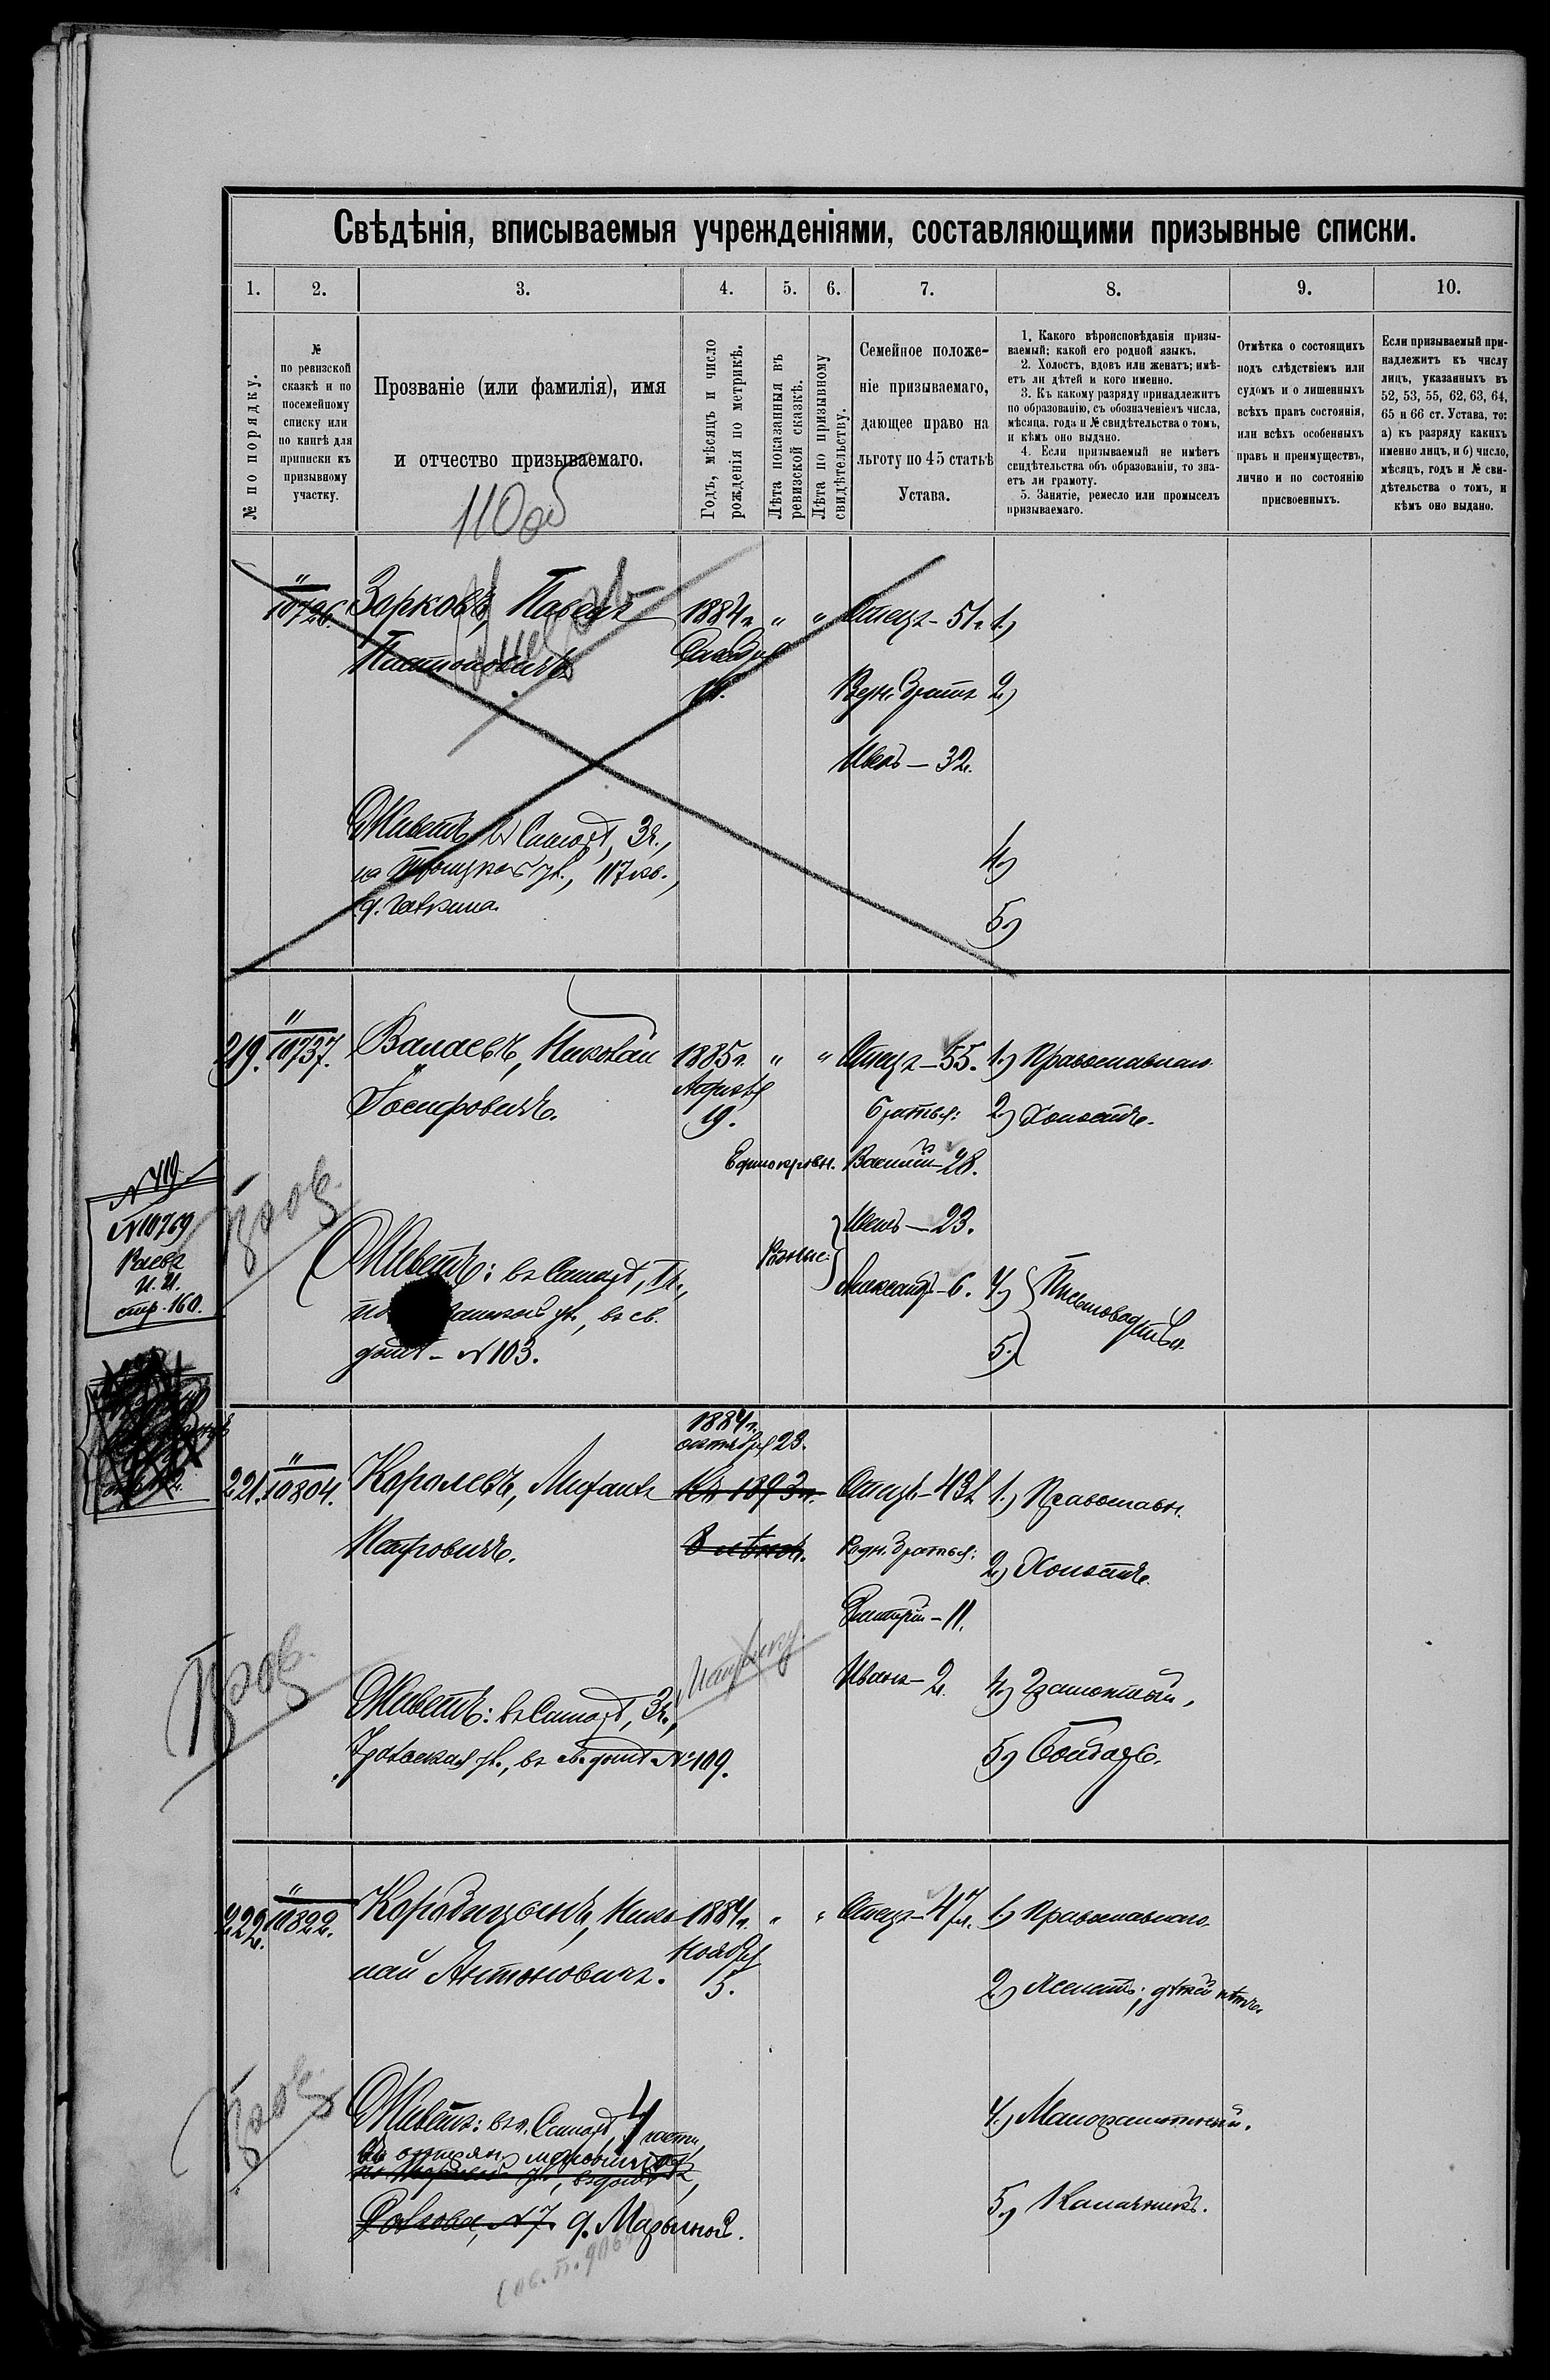 Свѣдѣнія, вписываемыя учрежденіями, составляющими призывные списки.
1. 2. 3. 4. 5. 6. 7. 8. 9. 10.
№ по порядку.
№
по ревизской
сказкѣ и по
посемейному
списку или
по книгѣ для
приписки къ
призывному
участку.
Прозваніе (или фамилія), имя
и отчество призываемаго.
Годъ, мѣсяцъ и число
рожденія по метрикѣ.
Лѣта показанныя въ
ревизской сказкѣ.
Лѣта по призывному
свидѣтельству.
Семейное положе-
ніе призываемаго,
дающее право на
льготу по 45 статьѣ
Устава.
1. Какого вѣроисповѣданія призы-
ваемый; какой его родной языкъ.
2. Холостъ, вдовъ или женатъ; имѣ-
етъ ли дѣтей и кого именно.
3. Къ какому разряду принадлежитъ
по образованію, съ обозначеніемъ числа,
мѣсяца, года и № свидѣтельства о томъ,
и кѣмъ оно выдано.
4. Если призываемый не имѣетъ
свидѣтельства объ образованіи, то зна-
етъ ли грамоту.
5. Занятіе, ремесло или промыселъ
призываемаго.
Отмѣтка о состоящихъ
подъ слѣдствіемъ или
судомъ и о лишенныхъ
всѣхъ правъ состоянія,
или всѣхъ особенныхъ
правъ и преимуществъ,
лично и по состоянію
присвоенныхъ.
Если призываемый при-
надлежитъ къ числу
лицъ, указанныхъ въ
52, 53, 55, 62, 63, 64,
65 и 66 ст. Устава, то:
а) къ разряду какихъ
именно лицъ, и б) число,
мѣсяцъ, годъ и № сви-
дѣтельства о томъ, и
кѣмъ оно выдано.
110 об
" 10726. Зорковъ, Павелъ 1884 г. " " Отецъ - 51 г. 1.)
Платоновичъ
Родн. братъ 2)
Иванъ — 32.
Живетъ въ Самарѣ, 3 ч.,
на Троицкой ул., 117 кв., 4)
д. 5)
219. " 10737. Валаевъ, Николай 1885 г. " " Отецъ - 55. 1.) Православнаго
Іосифовичъ. Апрѣля
19. братья: 2.) Холостъ.
Единокровн. Василій - 28.
Иванъ — 23.
Родные: Александръ - 6. 4.) Письмоводитель
5.)
Пров.
Живетъ: въ Самарѣ,
ул., въ св.
домѣ - № 103.
№ 219
№ 10769
Раевъ
И. И.
стр. 160.
1884 г.
октября 23.
221. " 10804. Королевъ, Михаилъ Къ 1893 г. Отецъ - 43 л. 1.) Православн.
Петровичъ. 8 лѣтъ. Родн. братья: 2.) Холостъ.
Дмитрій - 11.
Иванъ - 2. 4.) Грамотный,
5.) Бондарь.
Пров.
Живетъ: въ Самарѣ, 3 ч.,
Уральская ул., въ св. домѣ № 109.
222. " 10822. Коробицынъ, Нико- 1884 г. " " Отецъ - 47 л. 1.) Православнаго
лай Антоновичъ. Ноября
5. 2.) Женатъ; дѣтей нѣтъ.
Пров.
Живетъ: въ г. Самарѣ, 4 части,
ул., въ домѣ
№ 7. д. Марьиной.
4.) Малограмотный.
5.) Калачникъ.